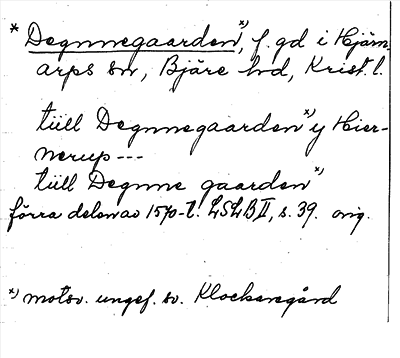 * Degnnegaarden*), f. gd i Hjärn-
arps sn, Bjäre hd, Krist. l.
tiill Degnnegaarden*) y Hier-
nerup ---
tiill Degnne gaarden*)
förra delen av 1570-t. LSLB II, s. 39. orig.
*) motsv. ungef. sv. Klockaregård